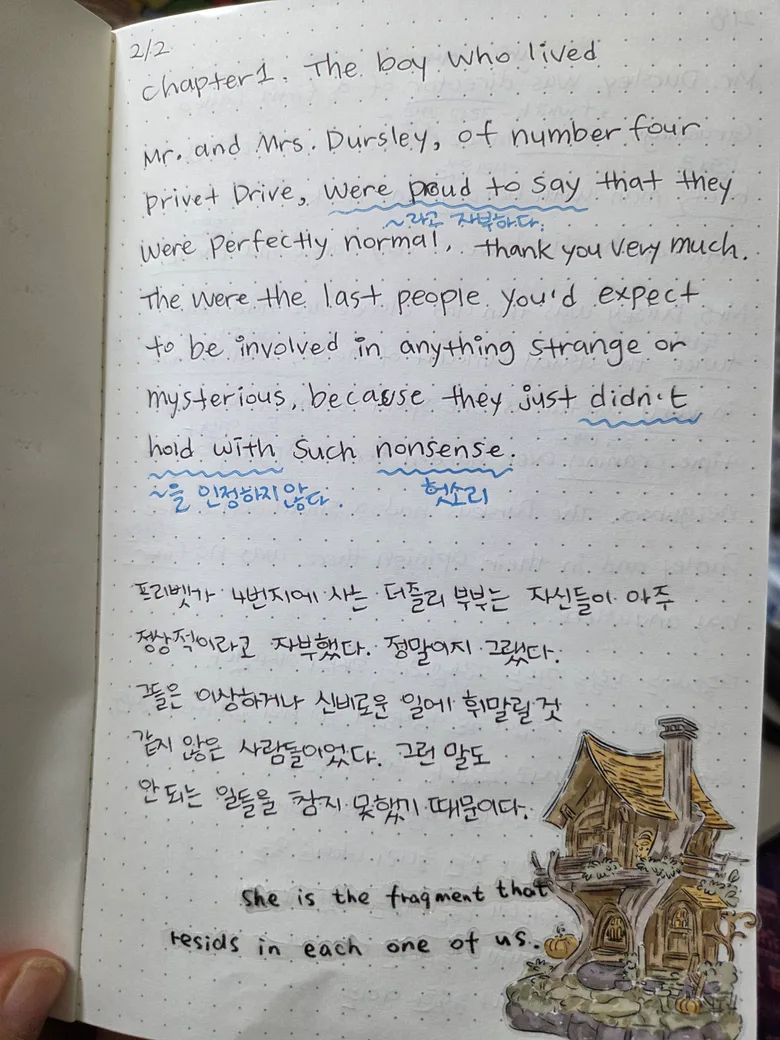 2/2
chapter1. The boy who lived
Mr. and Mrs. Dursley, of number four
privet Drive, were proud to say that they
~라고 자부하다.
were perfectly normal, thank you very much.
The were the last people you'd expect
to be involved in anything strange or
mysterious, because they just didn't
hold with such nonsense.
~을 인정하지 않다. 헛소리
프리벳가 4번지에 사는 더즐리 부부는 자신들이 아주
정상적이라고 자부했다. 정말이지 그랬다.
그들은 이상하거나 신비로운 일에 휘말릴 것
같지 않은 사람들이었다. 그런 말도
안 되는 일들을 참지 못했기 때문이다.
She is the fragment that
resids in each one of us.